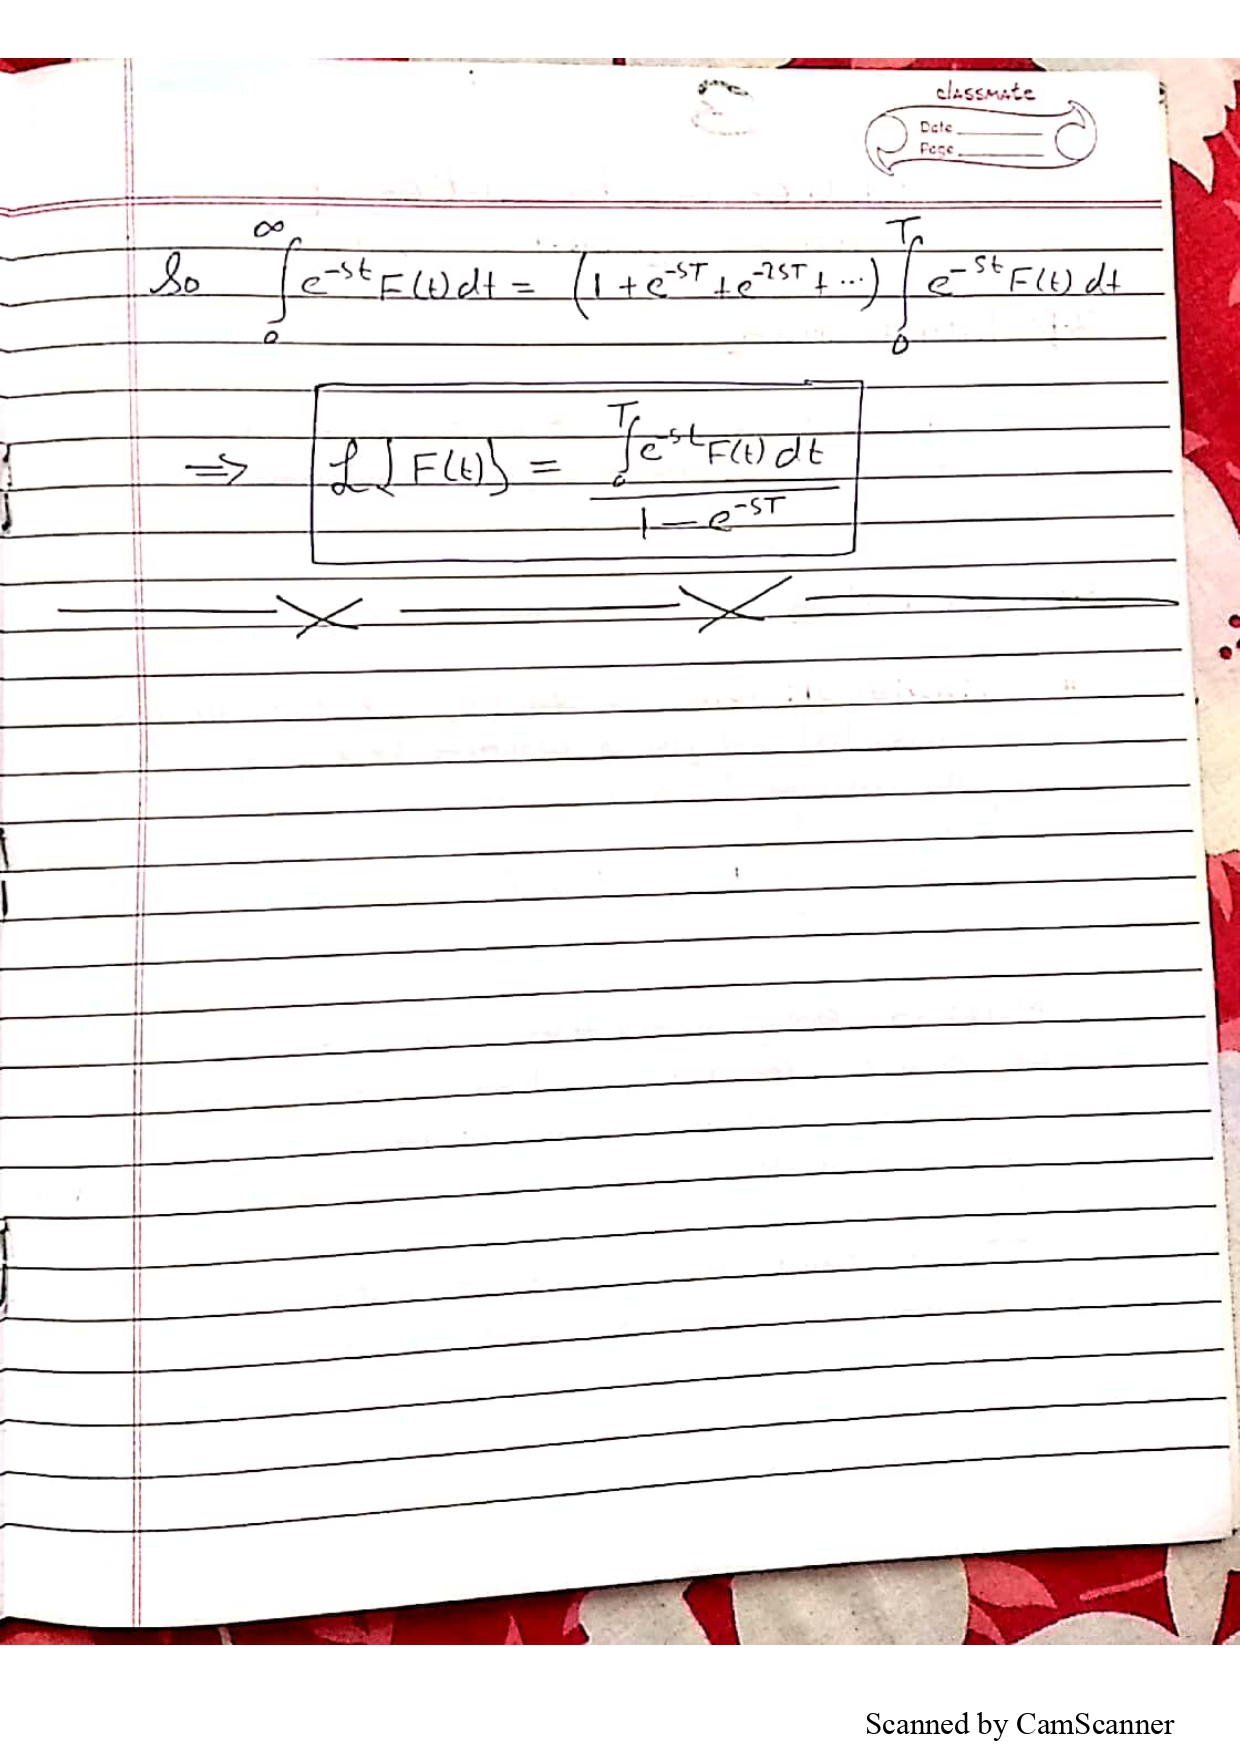 classmate
Date
Page
So ∫₀^∞ e^{-st} F(t) dt = (1 + e^{-sT} + e^{-2sT} + ...) ∫₀^T e^{-st} F(t) dt
⇒ ℒ{F(t)} = ∫₀^T e^{-st} F(t) dt / 1 - e^{-sT}
Scanned by CamScanner